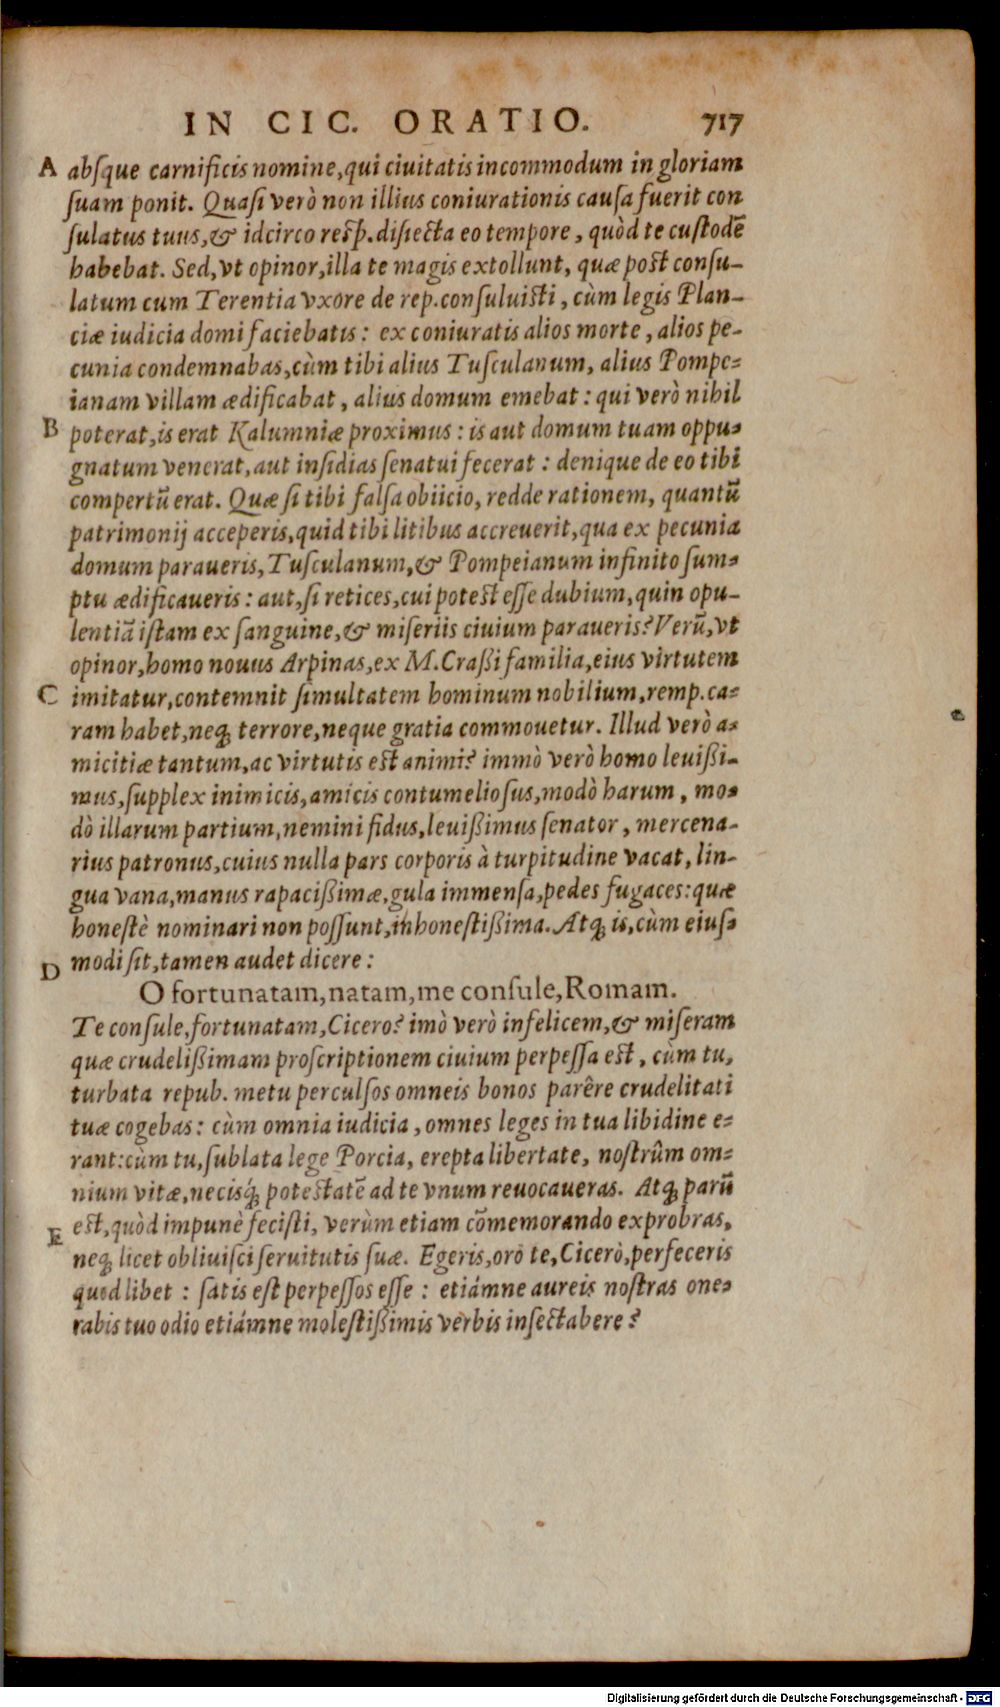 IN CIC. ORATIO. 717
A absque carnificis nomine, qui ciuitatis incommodum in gloriam
suam ponit. Quasi verò non illius coniurationis causa fuerit con
sulatus tuus, & idcirco resp̃. disiecta eo tempore, quòd te custodẽ
habebat. Sed, vt opinor, illa te magis extollunt, quæ post consu-
latum cum Terentia vxore de rep. consuluisti, cùm legis Plan-
ciæ iudicia domi faciebatis: ex coniuratis alios morte, alios pe-
cunia condemnabas, cùm tibi alius Tusculanum, alius Pompe-
ianam villam ædificabat, alius domum emebat: qui verò nihil
B poterat, is erat Kalumniæ proximus: is aut domum tuam oppu-
gnatum venerat, aut insidias senatui fecerat: denique de eo tibi
compertũ erat. Quæ si tibi falsa obiicio, redde rationem, quantũ
patrimonij acceperis, quid tibi litibus accreuerit, qua ex pecunia
domum paraueris, Tusculanum, & Pompeianum infinito sum-
ptu ædificaueris: aut, si retices, cui potest esse dubium, quin opu-
lentiã istam ex sanguine, & miseriis ciuium paraueris? Verũ, vt
opinor, homo nouus Arpinas, ex M. Craßi familia, eius virtutem
C imitatur, contemnit simultatem hominum nobilium, remp. ca-
ram habet, neq; terrore, neque gratia commouetur. Illud verò a-
micitiæ tantum, ac virtutis est animi? immò verò homo leuißi-
mus, supplex inimicis, amicis contumeliosus, modò harum, mo-
dò illarum partium, nemini fidus, leuißimus senator, mercena-
rius patronus, cuius nulla pars corporis à turpitudine vacat, lin-
gua vana, manus rapacißimæ, gula immensa, pedes fugaces: quæ
honestè nominari non possunt, inhonestißima. Atq; is, cùm eius-
D modi sit, tamen audet dicere:
O fortunatam, natam, me consule, Romam.
Te consule, fortunatam, Cicero? imò verò infelicem, & miseram
quæ crudelißimam proscriptionem ciuium perpessa est, cùm tu,
turbata repub. metu perculsos omneis bonos parêre crudelitati
tuæ cogebas: cùm omnia iudicia, omnes leges in tua libidine e-
rant: cùm tu, sublata lege Porcia, erepta libertate, nostrûm om-
nium vitæ, necisq́; potestatẽ ad te vnum reuocaueras. Atq; parũ
E est, quòd impunè fecisti, verùm etiam cõmemorando exprobras,
neq; licet obliuisci seruitutis suæ. Egeris, oro te, Cicerò, perfeceris
quod libet: satis est perpessos esse: etiámne aureis nostras one-
rabis tuo odio etiámne molestißimis verbis insectabere?
Digitalisierung gefördert durch die Deutsche Forschungsgemeinschaft - DFG